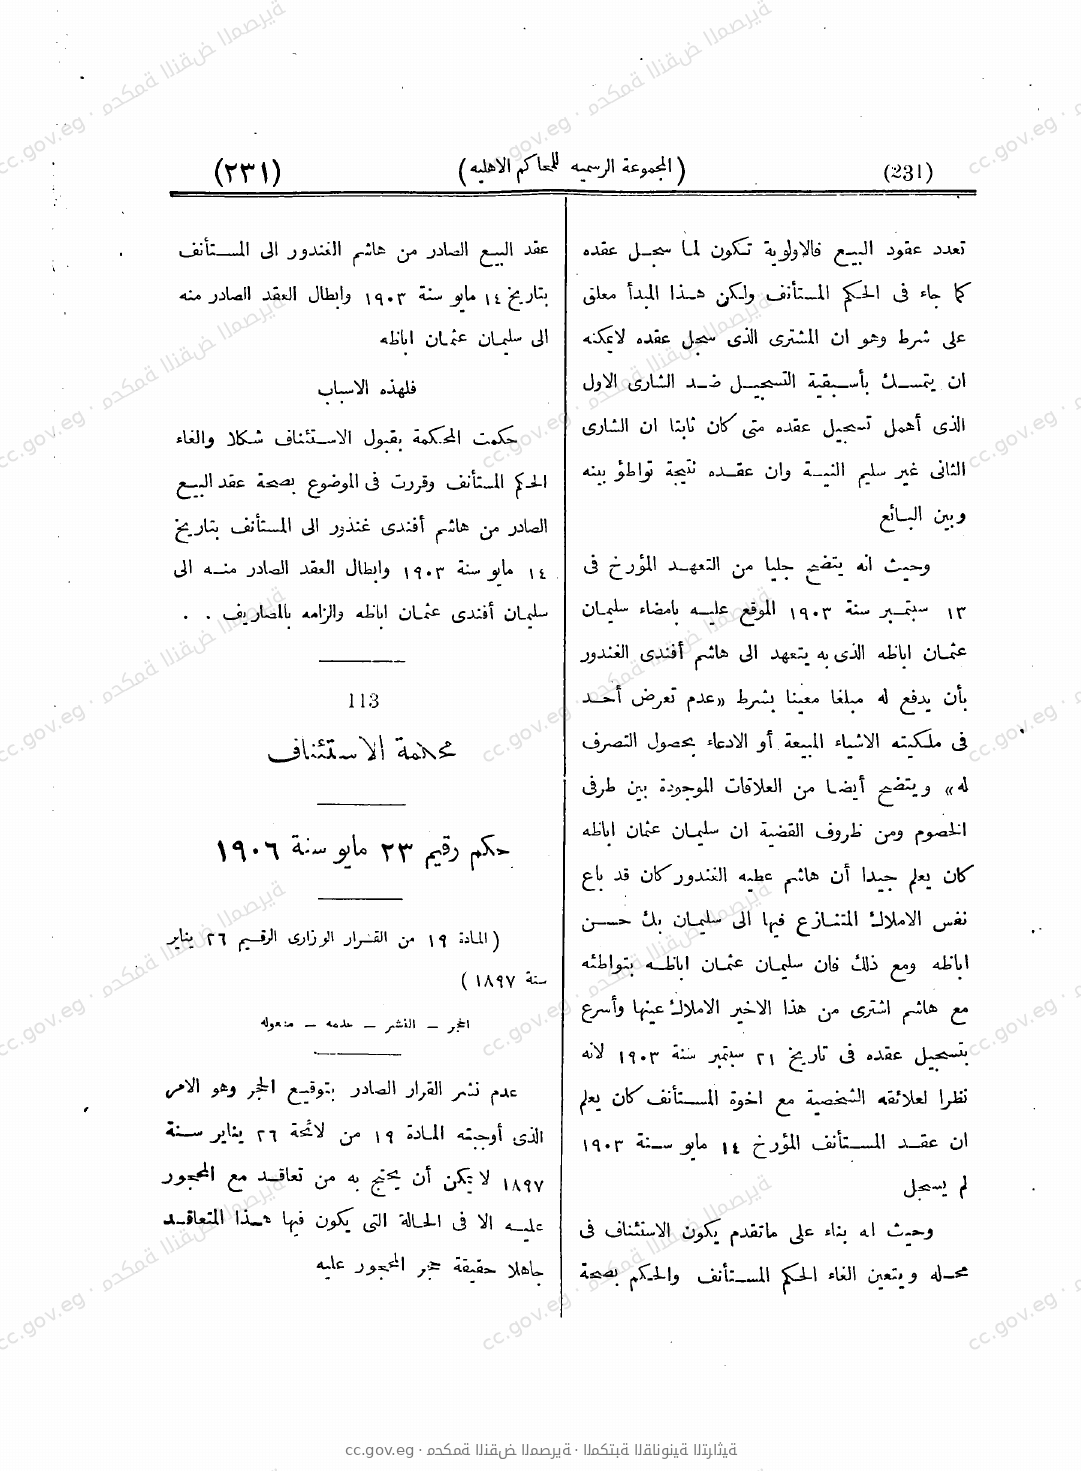 (231)
(المجموعة الرسميه للمحاكم الاهليه)
(٢٣١)
تعدد عقود البيع فالاولوية تكون لما سجل عقده
كما جاء فى الحكم المستأنف ولكن هذا المبدأ معلق
على شرط وهو ان المشترى الذى سجل عقده لايمكنه
ان يتمسك بأسبقية التسجيل ضد الشارى الاول
الذى أهمل تسجيل عقده متى كان ثابتا ان الشارى
الثانى غير سليم النية وان عقده نتيجة تواطؤ بينه
وبين البائع
وحيث انه يتضح جليا من التعهد المؤرخ فى
١٣ سبتمبر سنة ١٩٠٣ الموقع عليه بامضاء سليمان
عثمان اباظه الذى به يتعهد الى هاشم أفندى الغندور
بأن يدفع له مبلغا معينا بشرط «عدم تعرض أحد
فى ملكيته الاشياء المبيعة أو الادعاء بحصول التصرف
له» ويتضح أيضا من العلاقات الموجودة بين طرفى
الخصوم ومن ظروف القضية ان سليمان عثمان اباظه
كان يعلم جيدا أن هاشم عطيه الغندور كان قد باع
نفس الاملاك المتنازع فيها الى سليمان بك حسن
اباظه ومع ذلك فان سليمان عثمان اباظه بتواطئه
مع هاشم اشترى من هذا الاخير الاملاك عينها وأسرع
بتسجيل عقده فى تاريخ ٢١ سبتمبر سنة ١٩٠٣ لانه
نظرا لعلائقه الشخصية مع اخوة المستأنف كان يعلم
ان عقد المستأنف المؤرخ ١٤ مايو سنة ١٩٠٣
لم يسجل
وحيث اه بناء على ماتقدم يكون الاستئناف فى
محله ويتعين الغاء الحكم المستأنف والحكم بصحة
عقد البيع الصادر من هاشم الغندور الى المستأنف
بتاريخ ١٤ مايو سنة ١٩٠٣ وابطال العقد الصادر منه
الى سليمان عثمان اباظه
فلهذه الاسباب
حكمت المحكمة بقبول الاستئناف شكلا والغاء
الحكم المستأنف وقررت فى الموضوع بصحة عقد البيع
الصادر من هاشم أفندى غندور الى المستأنف بتاريخ
١٤ مايو سنة ١٩٠٣ وابطال العقد الصادر منه الى
سليمان أفندى عثمان اباظه والزامه بالمصاريف . .
113
محكمة الاستئناف
حكم رقيم ٢٣ مايو سنة ١٩٠٦
(المادة ١٩ من القرار الوزارى الرقيم ٢٦ يناير
سنة ١٨٩٧)
الحجر – النشر – عدمه – مفعوله
عدم نشر القرار الصادر بتوقيع الحجر وهو الامر
الذى أوجبته المادة ١٩ من لائحة ٢٦ يناير سنة
١٨٩٧ لا يمكن أن يحتج به من تعاقد مع المحجور
عليه الا فى الحالة التى يكون فيها هذا المتعاقد
جاهلا حقيقة حجر المحجور عليه
cc.gov.eg · محكمة النقض المصرية · المكتبة القانونية التراثية